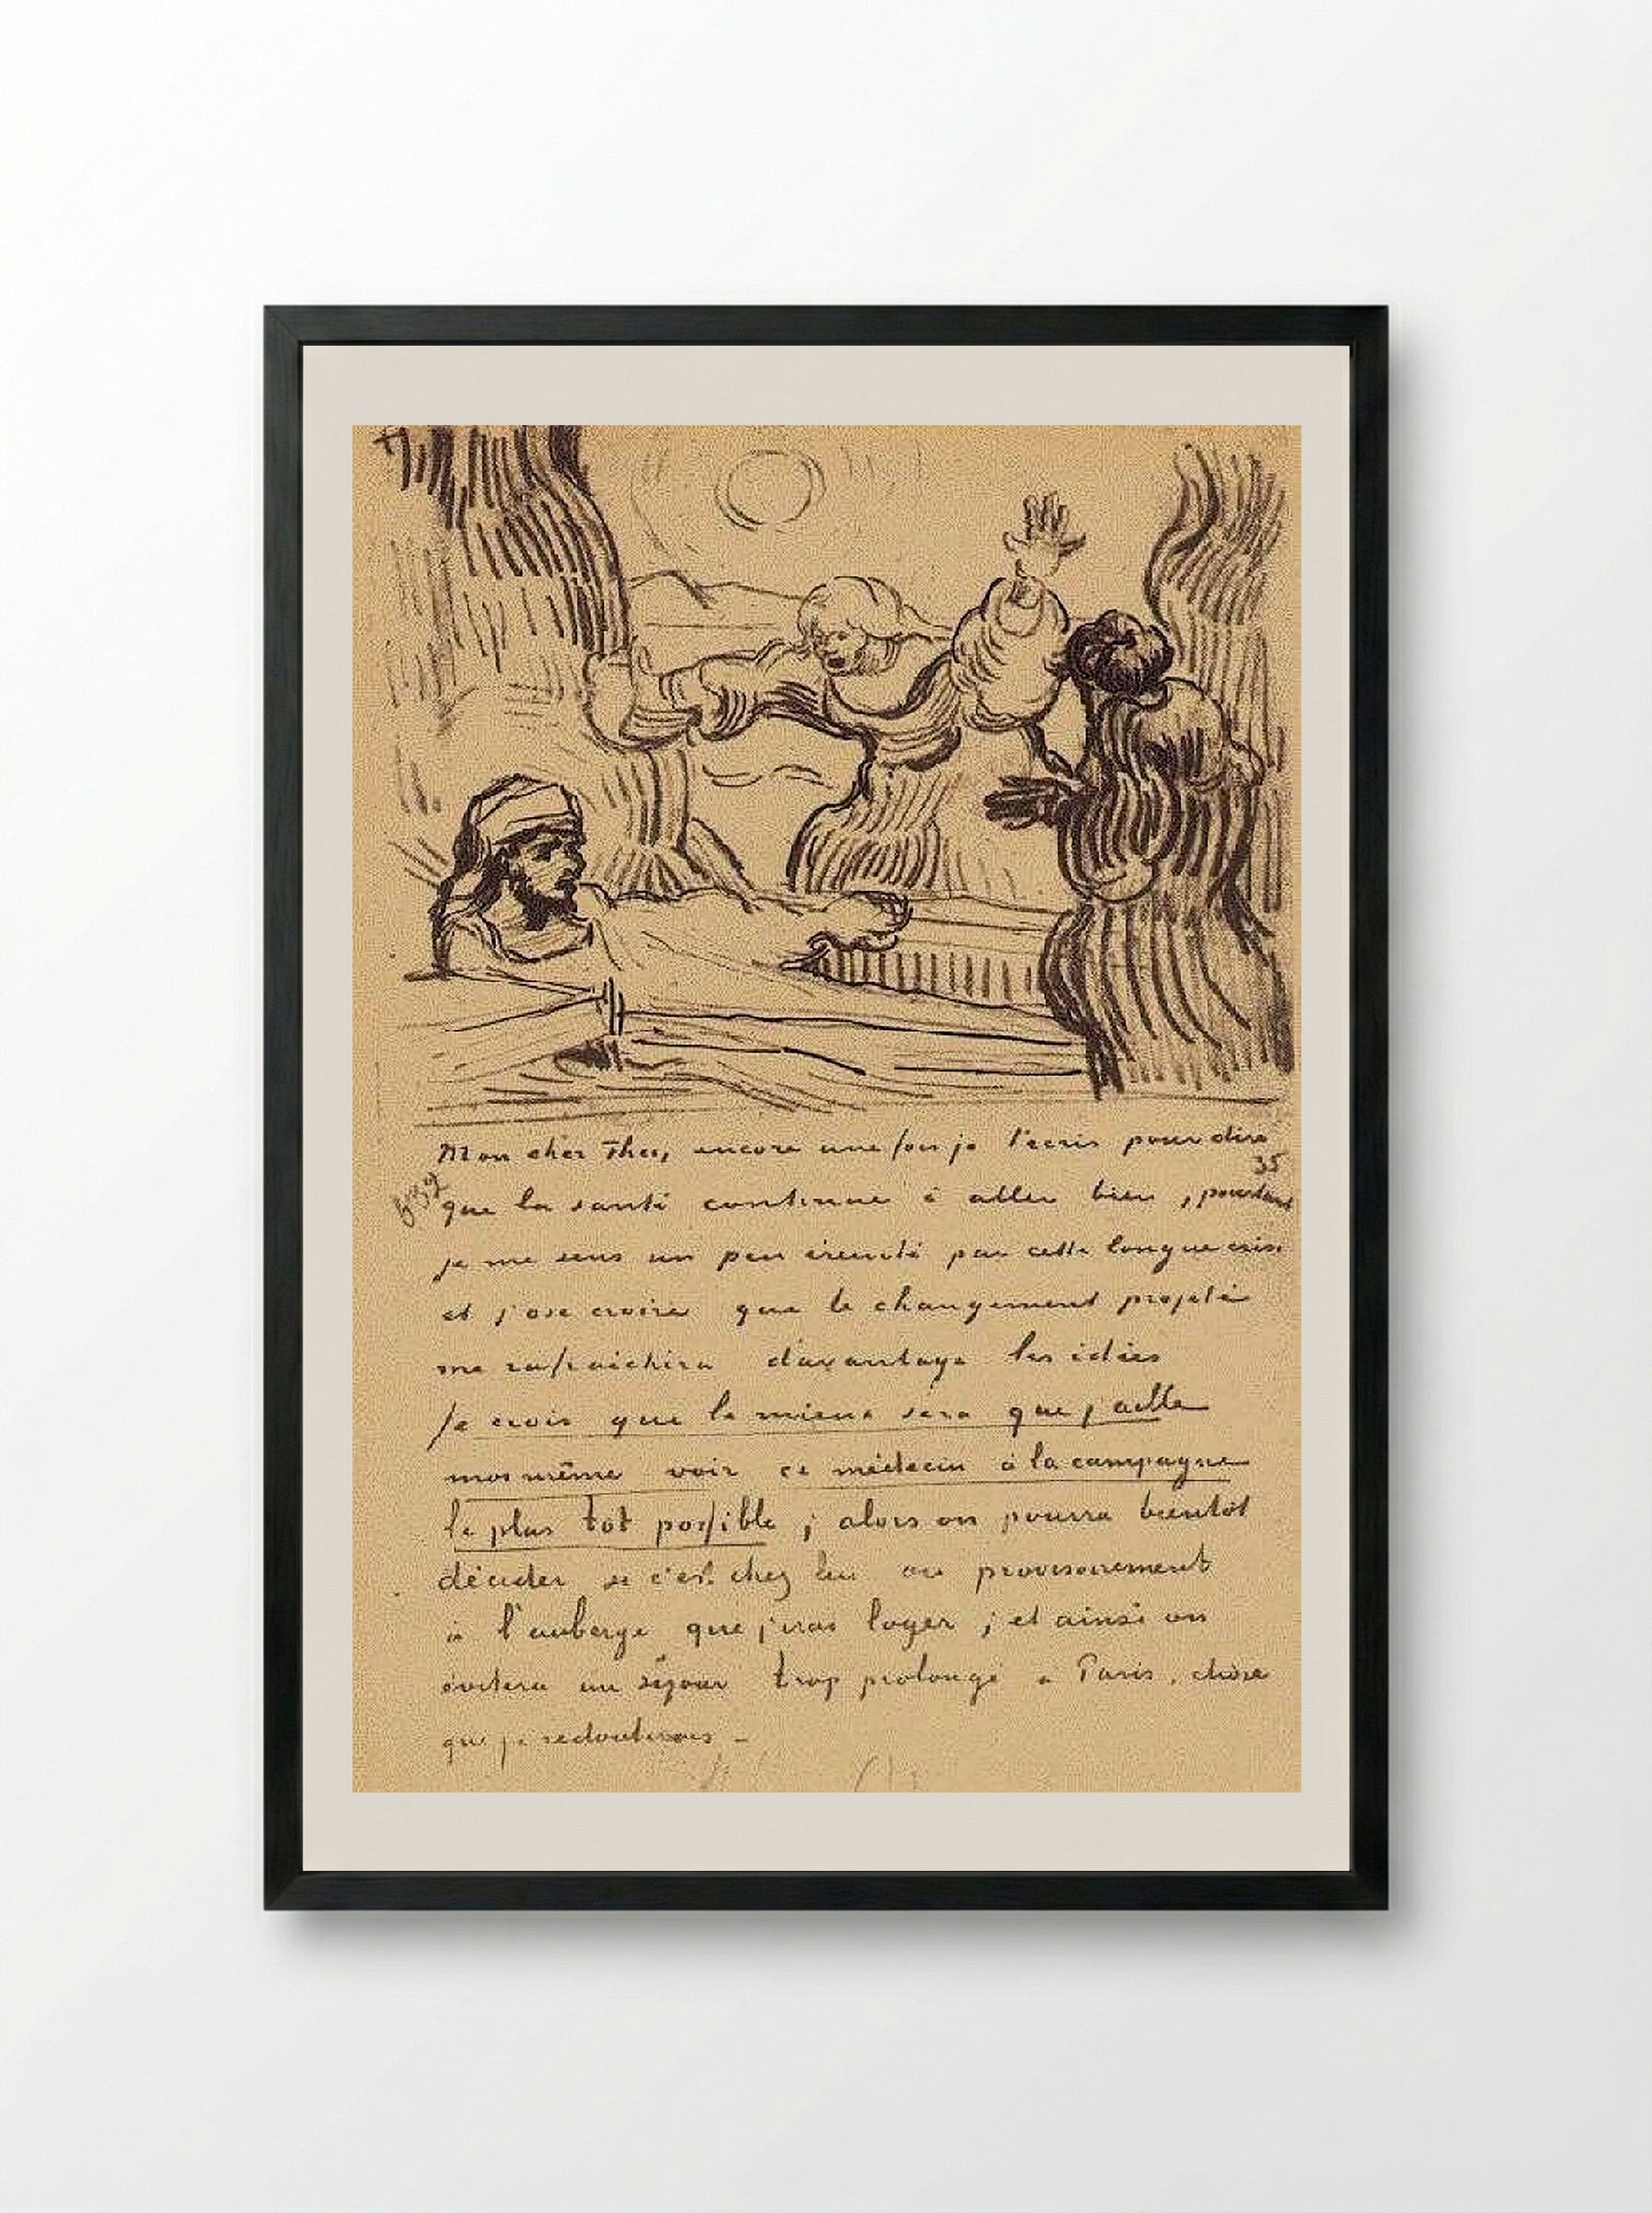 Mon cher Theo, encore une fois je t'écris pour dire
35
que la santé continue à aller bien, pourtant
je me sens un peu éreinté par cette longue crise
et j'ose croire que le changement projeté
me rafraichira davantage les idées
Je crois que le mieux sera que j'aille
moi même voir ce médecin à la campagne
le plus tot possible ; alors on pourra bientôt
décider si c'est chez lui ou provisoirement
à l'auberge que j'irai loger ; et ainsi on
évitera un séjour trop prolongé à Paris, chose
que je redouterais –